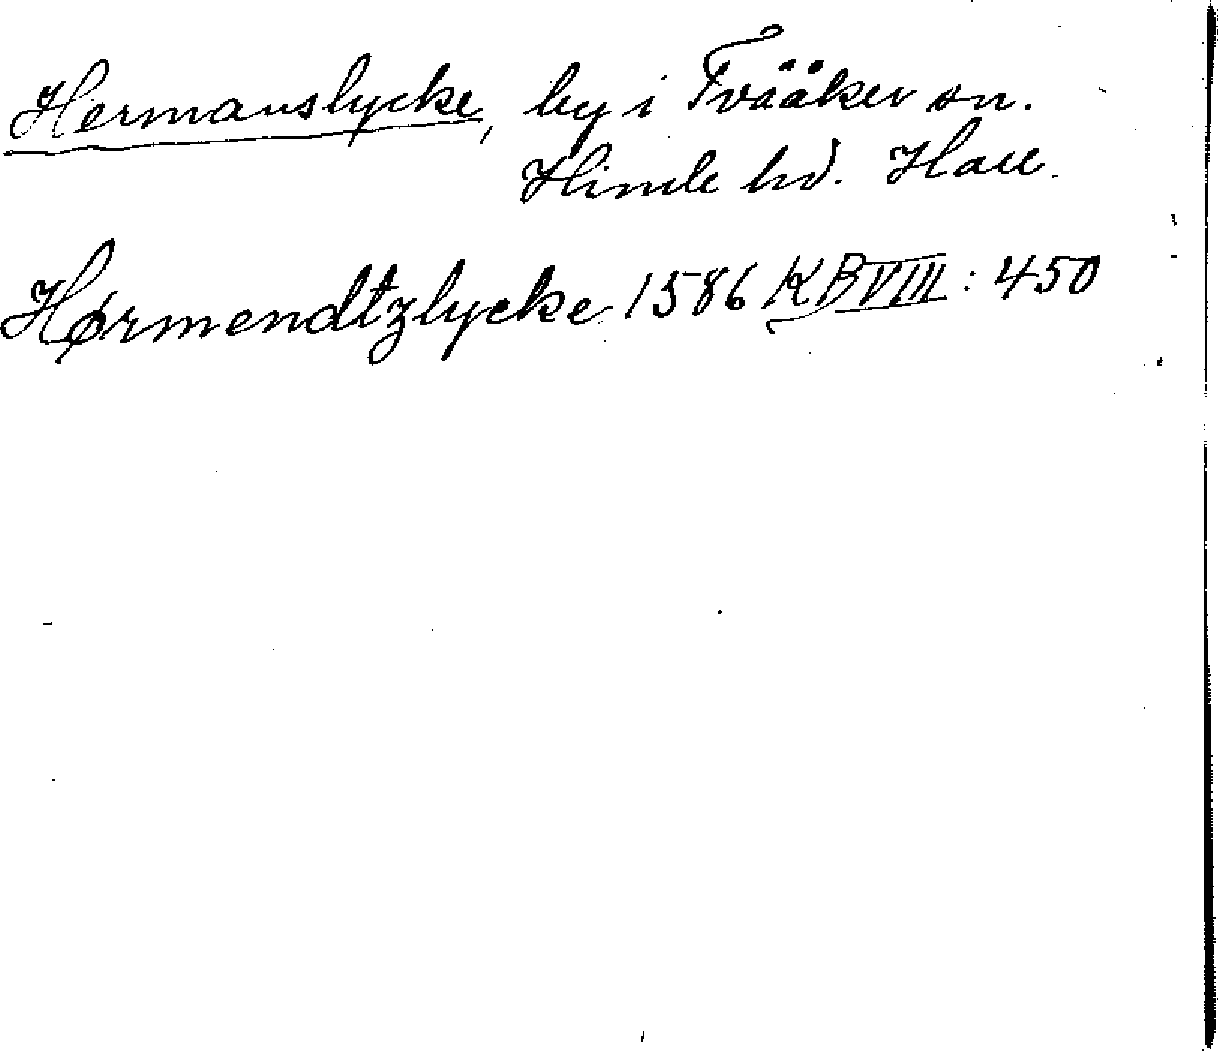 Hermanslycke, by i Tvååker sn.
Himle hd. Hall.
Hørmendtzlycke 1586 KBVIII: 450